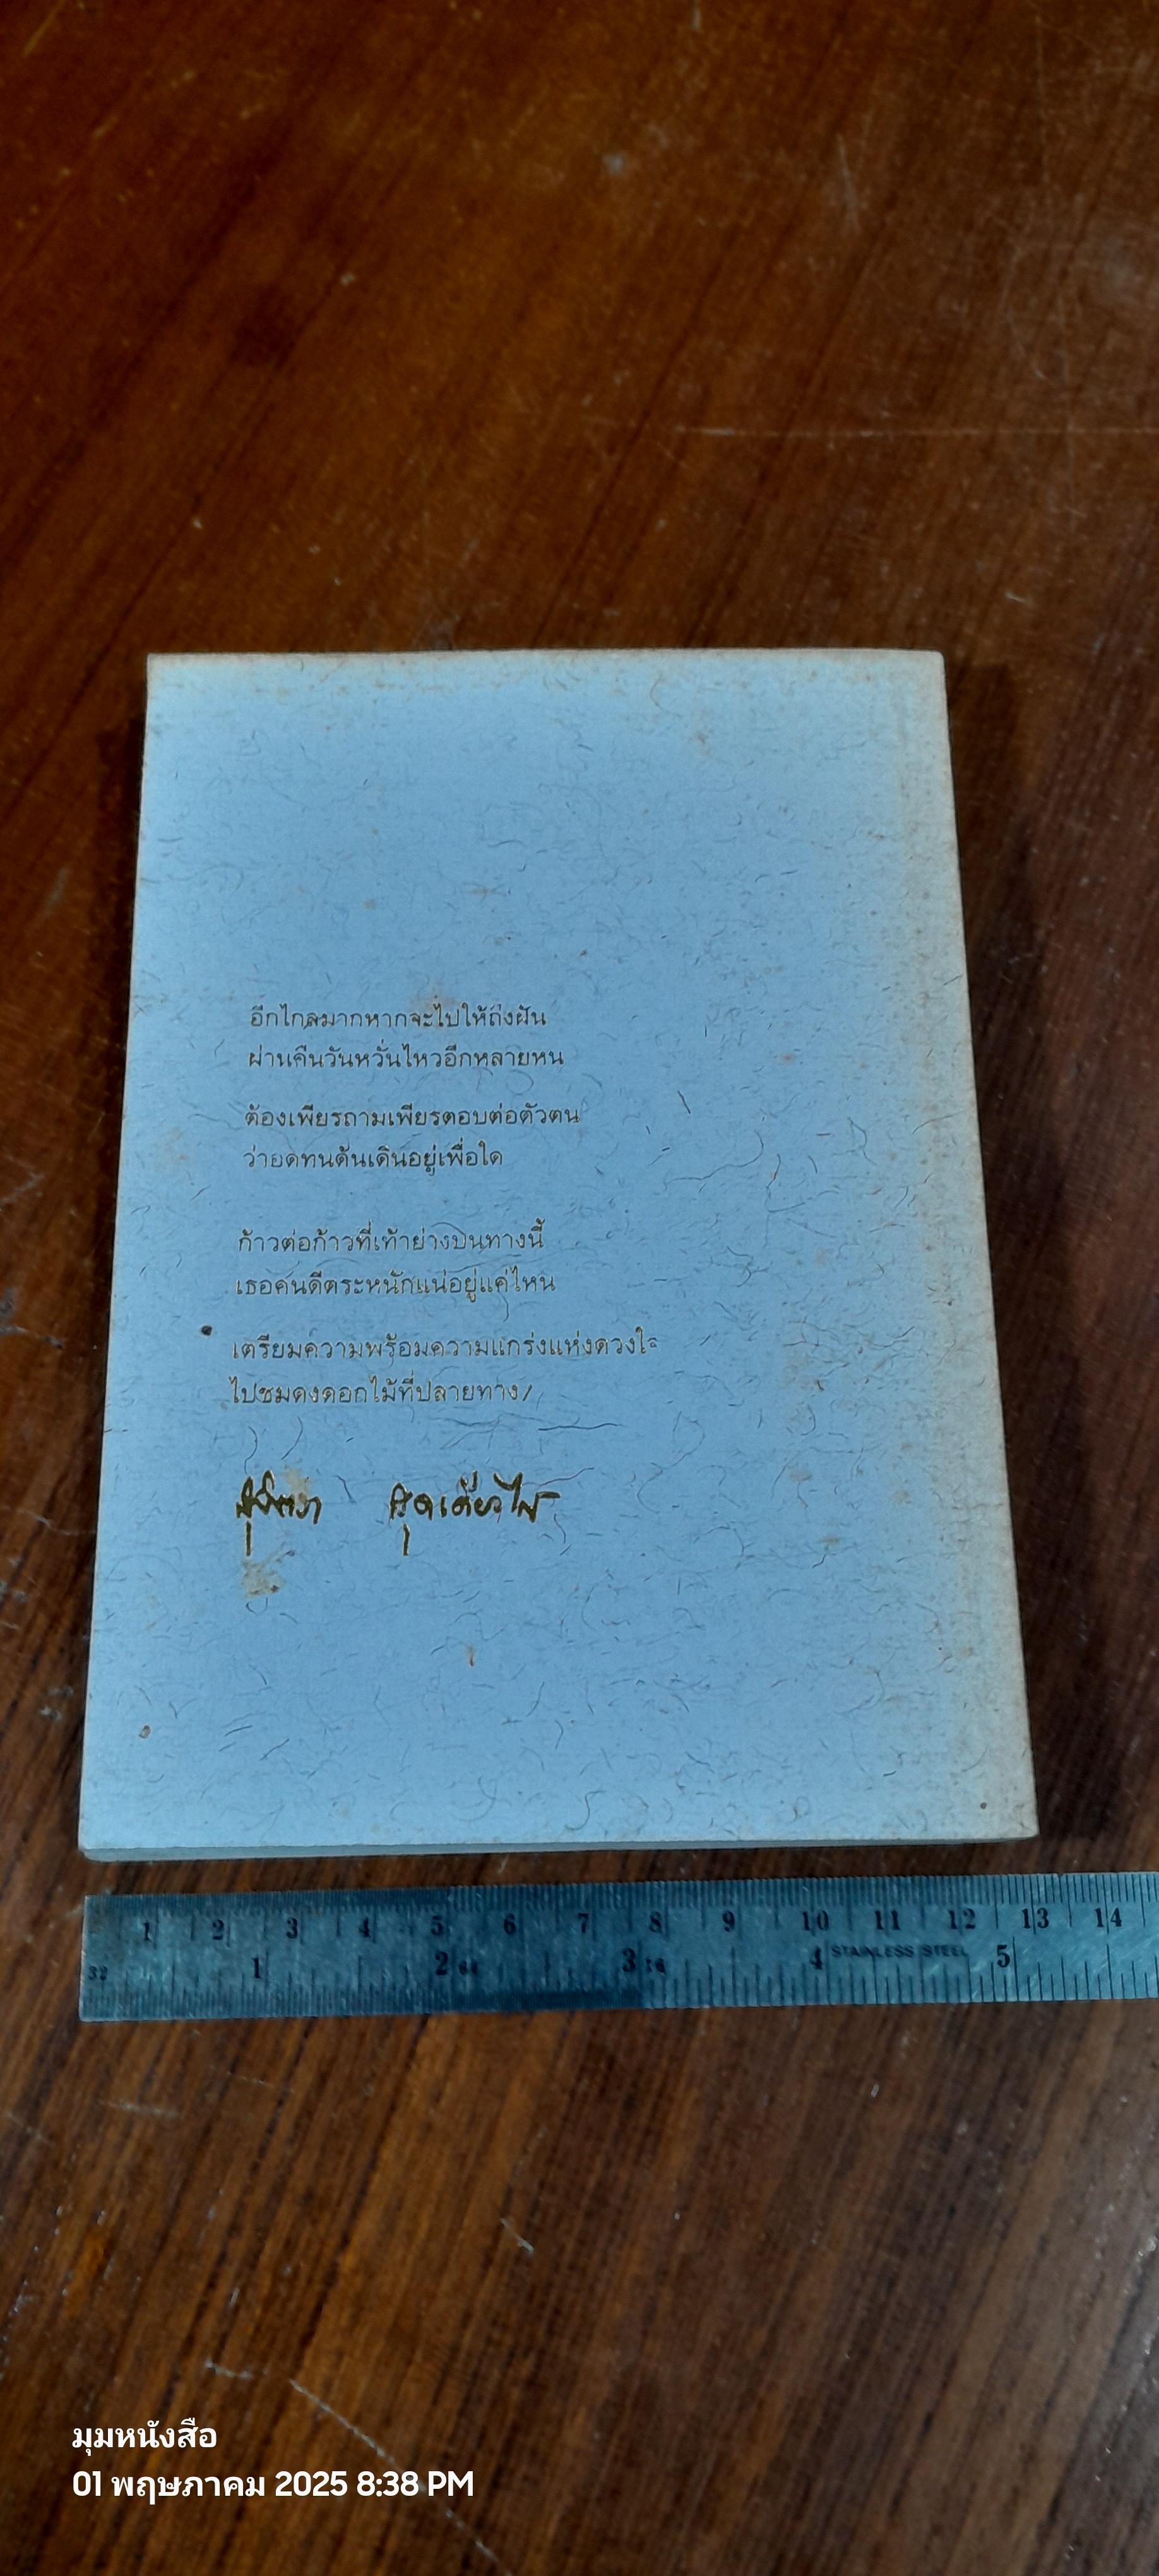 อีกไกลมากหากจะไปให้ถึงฝัน
ผ่านคืนวันหวั่นไหวอีกหลายหน
ต้องเพียรถามเพียรตอบต่อตัวตน
ว่าอดทนดั้นเดินอยู่เพื่อใด
ก้าวต่อก้าวที่เท้าย่างบนทางนี้
เธอคนดีตระหนักแน่อยู่แค่ไหน
เตรียมความพร้อมความแกร่งแห่งดวงใจ
ไปชมดงดอกไม้ที่ปลายทาง/
1 2 3 4 5 6 7 8 9 10 11 12 13 14
32 1 2 64 3 16 4 STAINLESS STEEL 5
มุมหนังสือ
01 พฤษภาคม 2025 8:38 PM